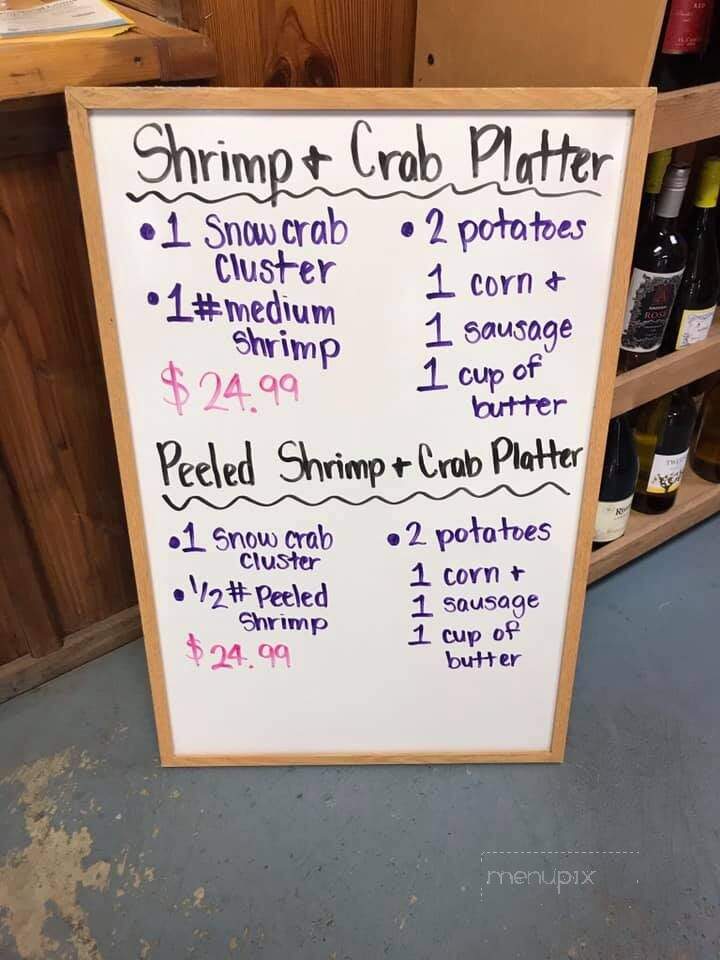 Shrimp + Crab Platter
• 1 Snow crab
cluster
• 1# medium
shrimp
$24.99
• 2 potatoes
1 corn +
1 sausage
1 cup of
butter
Peeled Shrimp + Crab Platter
• 1 Snow crab
cluster
• 1/2# Peeled
Shrimp
$24.99
• 2 potatoes
1 corn +
1 sausage
1 cup of
butter
RED
ROSE
menupix